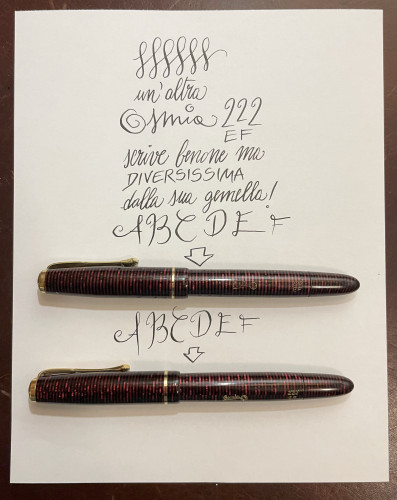 un'altra
Osmia 222
EF
scrive benone ma
DIVERSISSIMA
dalla sua gemella!
ABCDEF
ABCDEF